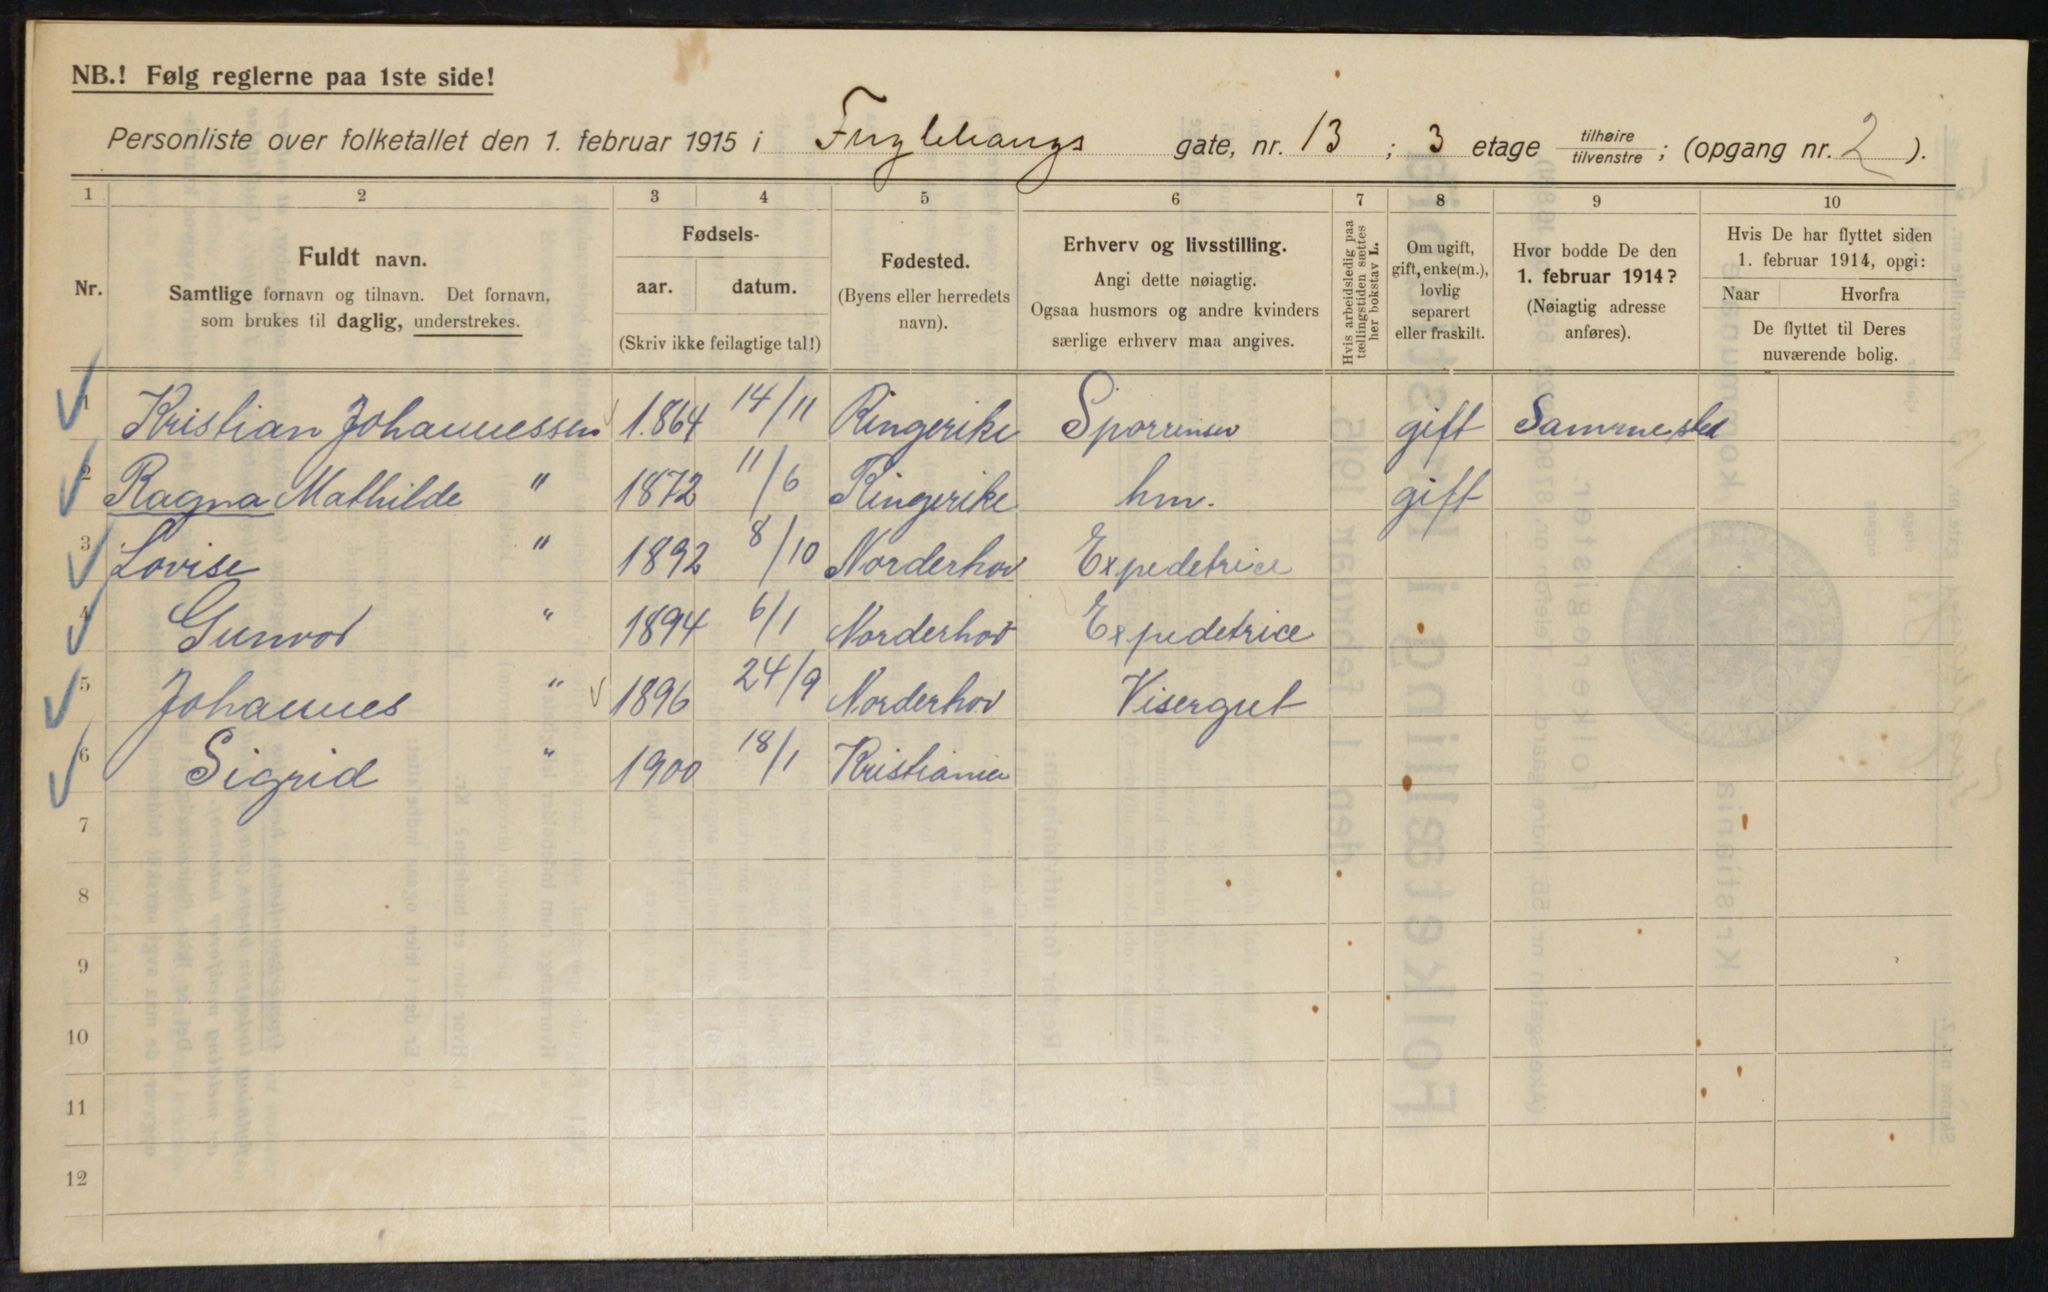 NB.! Følg reglerne paa 1ste side!
Personliste over folketallet den 1. februar 1915 i Fuglehaugs gate, nr. 13 ; 3 etage tilhøire / tilvenstre ; (opgang nr. 2 ).
1 2 3 4 5 6 7 8 9 10
Nr.
Fuldt navn.
Samtlige fornavn og tilnavn. Det fornavn,
som brukes til daglig, understrekes.
Fødsels-
aar. datum.
(Skriv ikke feilagtige tal!)
Fødested.
(Byens eller herredets
navn).
Erhverv og livsstilling.
Angi dette nøiagtig.
Ogsaa husmors og andre kvinders
særlige erhverv maa angives.
Hvis arbeidsledig paa
tællingstiden sættes
her bokstav L.
Om ugift,
gift, enke(m.),
lovlig
separert
eller fraskilt.
Hvor bodde De den
1. februar 1914?
(Nøiagtig adresse
anføres).
Hvis De har flyttet siden
1. februar 1914, opgi:
Naar Hvorfra
De flyttet til Deres
nuværende bolig.
1 Kristian Johannessen 1.864 14/11 Ringerike gift Sammested
2 Ragna Mathilde " 1872 11/6 Ringerike hm. gift
3 Lovise " 1892 8/10 Norderhov Expedetrice
4 Gunvor " 1894 6/1 Norderhov Expedetrice
5 Johannes " 1896 24/9 Norderhov Visergut
6 Sigrid " 1900 18/1 Kristiania
7
8
9
10
11
12